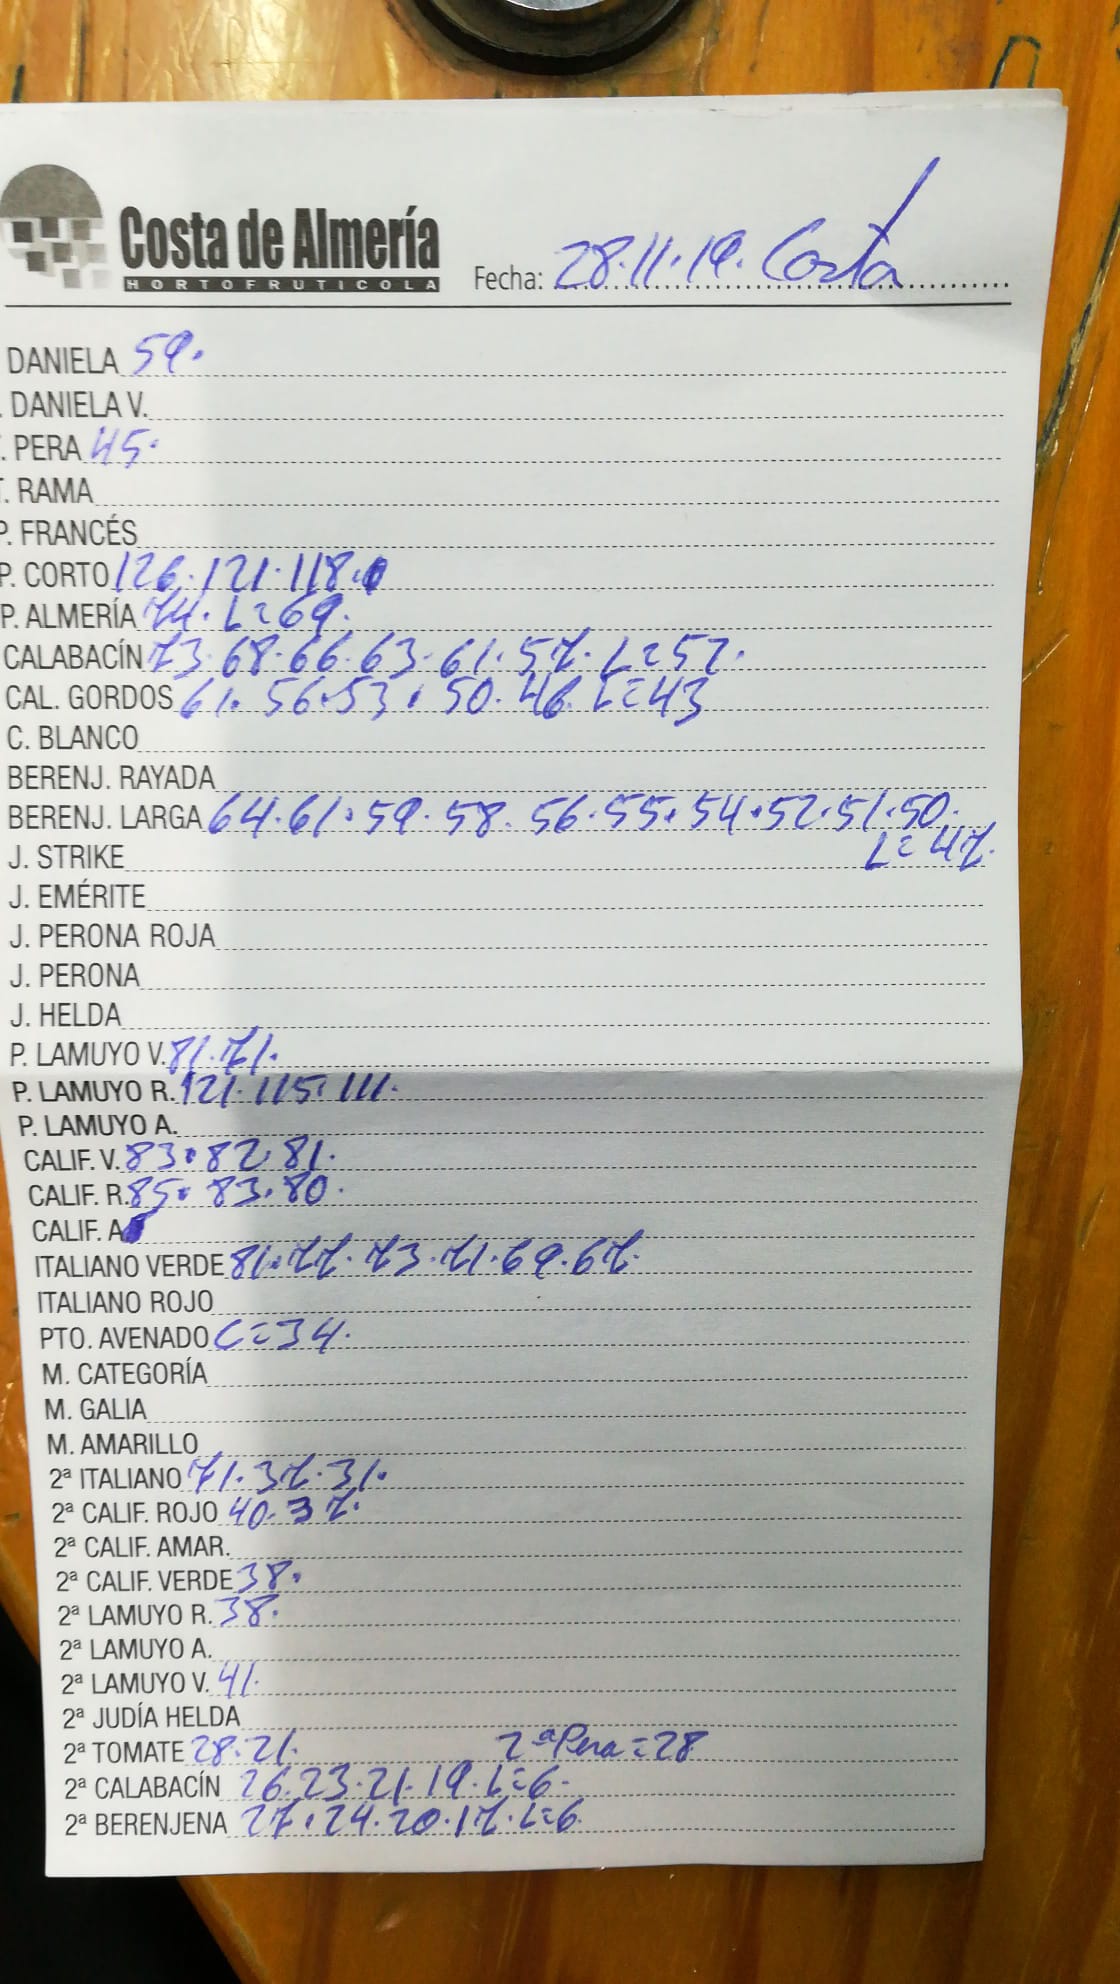 Costa de Almería
HORTOFRUTICOLA
Fecha: 28.11.19. Costa
DANIELA 59.
. DANIELA V.
. PERA 45.
T. RAMA
P. FRANCÉS
P. CORTO 126.121.118.
P. ALMERÍA 74. L=69.
CALABACÍN 73.68.66.63.61.57. L=52.
CAL. GORDOS 61.56.53.50.46. L=43
C. BLANCO
BERENJ. RAYADA
BERENJ. LARGA 64.61.59.58.56.55.54.52.51.50.
L=47.
J. STRIKE
J. EMÉRITE
J. PERONA ROJA
J. PERONA
J. HELDA
P. LAMUYO V. 81.71.
P. LAMUYO R. 121.115.111.
P. LAMUYO A.
CALIF. V. 83.82.81.
CALIF. R. 85.83.80.
CALIF. A
ITALIANO VERDE 81.77.73.71.69.67.
ITALIANO ROJO
PTO. AVENADO C=34.
M. CATEGORÍA
M. GALIA
M. AMARILLO
2ª ITALIANO 71.37.31.
2ª CALIF. ROJO 40.37.
2ª CALIF. AMAR.
2ª CALIF. VERDE 38.
2ª LAMUYO R. 38.
2ª LAMUYO A.
2ª LAMUYO V. 41.
2ª JUDÍA HELDA
2ª TOMATE 28.21. 2ª Pera=28
2ª CALABACÍN 26.23.21.19. L=6.
2ª BERENJENA 27.24.20.17. L=6.